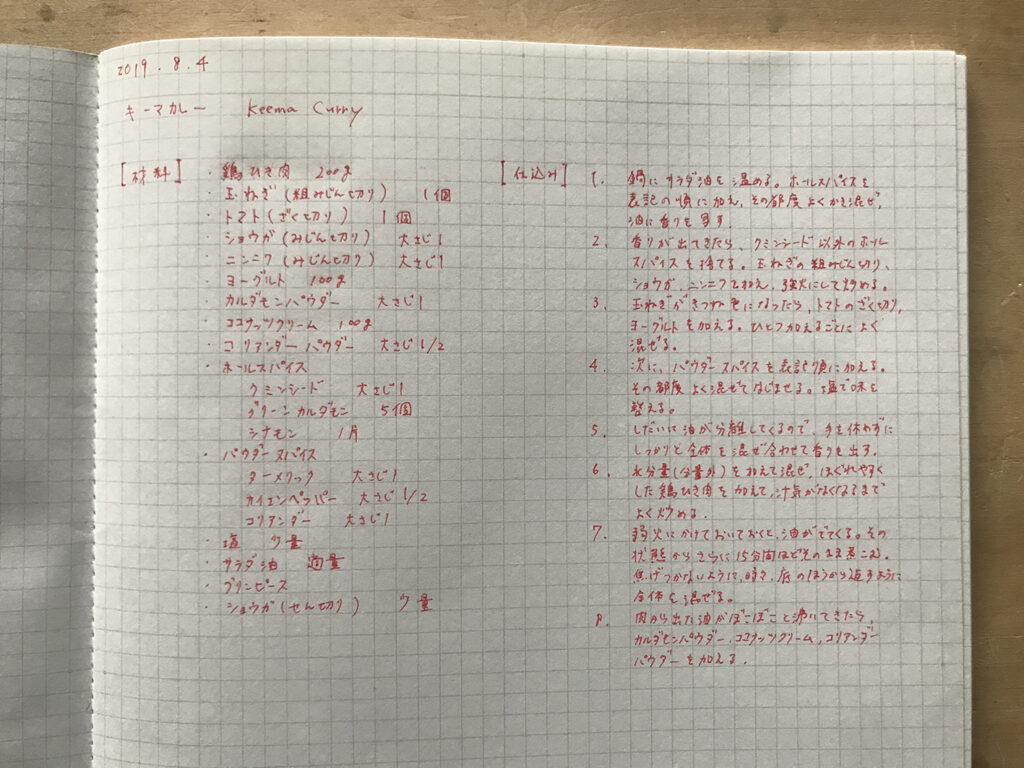 2019.8.4
キーマカレー Keema Curry
[材料]
・鶏ひき肉 200g
・玉ねぎ(粗みじん切り) 1個
・トマト(ざく切り) 1個
・ショウガ(みじん切り) 大さじ1
・ニンニク(みじん切り) 大さじ1
・ヨーグルト 100g
・カルダモンパウダー 大さじ1
・ココナッツクリーム 100g
・コリアンダーパウダー 大さじ1/2
・ホールスパイス
クミンシード 大さじ1
グリーンカルダモン 5個
シナモン 1片
・パウダースパイス
ターメリック 大さじ1
カイエンペッパー 大さじ1/2
コリアンダー 大さじ1
・塩 少量
・サラダ油 適量
・グリンピース
・ショウガ(せん切り) 少量
[仕込み]
1. 鍋にサラダ油を温める。ホールスパイスを
表記の順に加え、その都度よくかき混ぜ、
油に香りを写す。
2. 香りが出てきたら、クミンシード以外のホール
スパイスを捨てる。玉ねぎの粗みじん切り、
ショウガ、ニンニクを加え、強火にして炒める。
3. 玉ねぎがきつね色になったら、トマトのざく切り、
ヨーグルトを加える。ひとつ加えるごとによく
混ぜる。
4. 次に、パウダースパイスを表記の順に加える。
その都度よく混ぜてなじませる。塩で味を
整える。
5. しだいに油が分離してくるので、手を休めずに
しっかりと全体を混ぜ合わせて香りを出す。
6. 水分量(分量外)を加えて混ぜ、ほぐれやすく
した鶏ひき肉を加えて、汁気がなくなるまで
よく炒める。
7. 弱火にかけておいておくと、油がでてくる。その
状態からさらに15分間ほどそのまま煮こむ。
焦げつかないように、時々、底のほうから返すように
全体を混ぜる。
8. 肉から出た油がぼこぼこと沸いてきたら
カルダモンパウダー、ココナッツクリーム、コリアンダー
パウダーを加える。